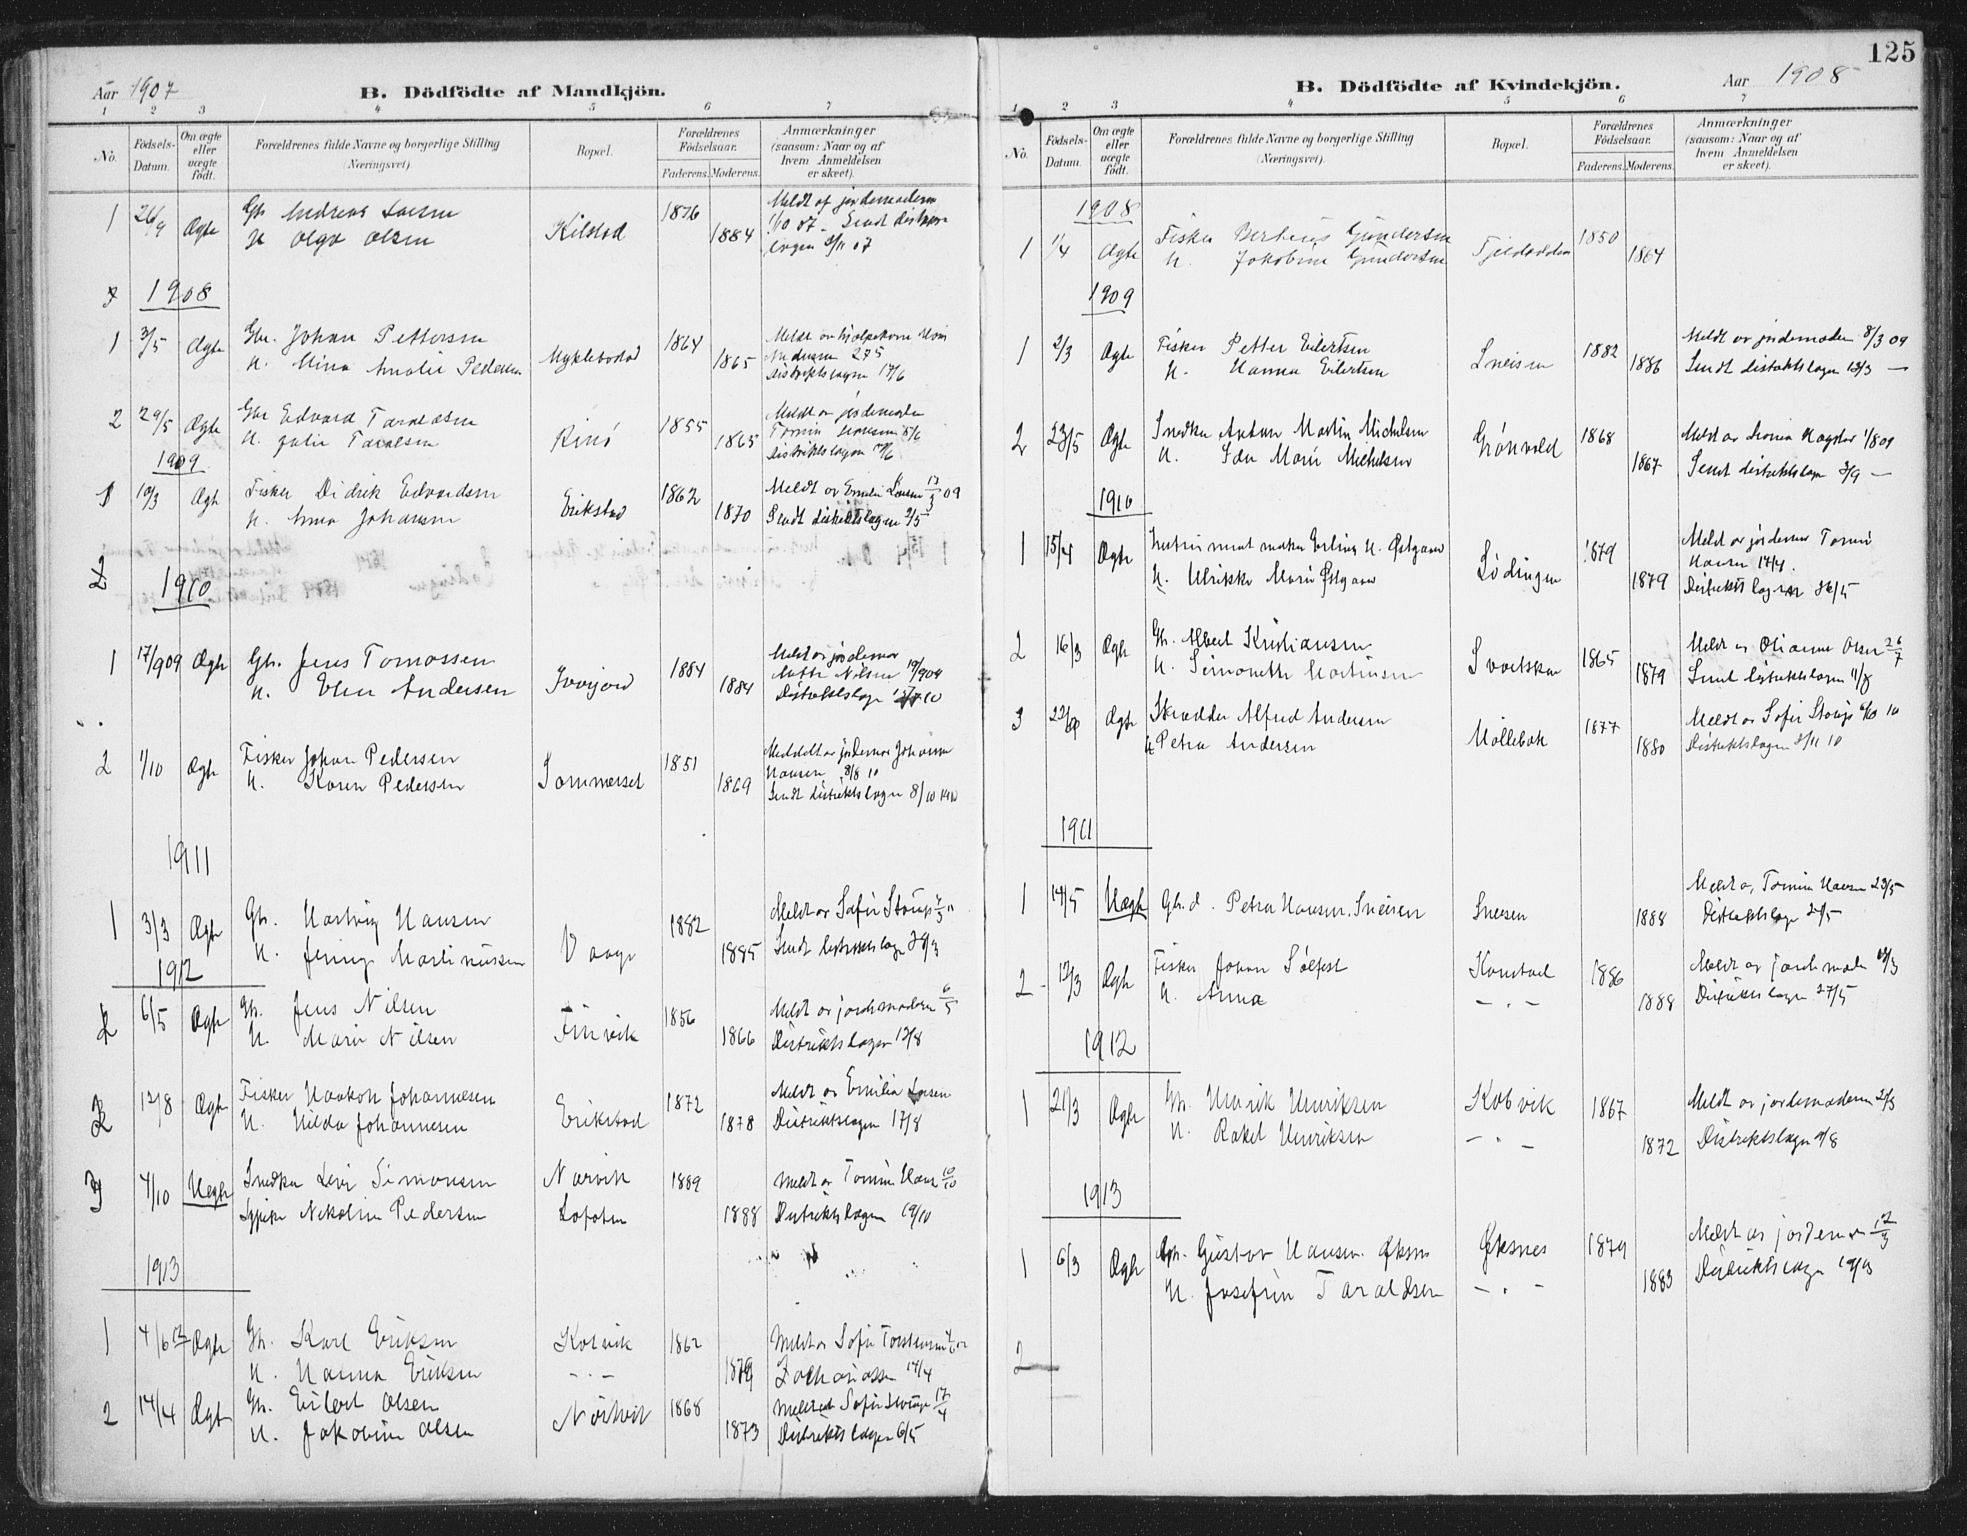 Aar 1907
B. Dödfödte af Mandkjön.
1 2 3 4 5 6 7
No. Födsels-Datum. Om ægte eller uægte födt. Forældrenes fulde Navne og borgerlige Stilling (Næringsvei). Bopæl. Forældrenes Födselsaar. Faderens. Moderens. Anmærkninger (saasom: Naar og af hvem Anmeldelsen er skeet).
1 26/9 Ægte Gbr Andreas Larsen Kilstad 1876 Meldt af jordemoderen
H Olga Olsen 1884 1/10 07. Sendt distrikts
lægen 8/11 07
1908
1 3/5 Ægte Gbr. Johan Pettersen Myklebostad 1864
H. Mina Amalie Pedersen 1865 Andersen 27/5
Distriktslægen 17/6
2 29/5 Ægte Gbr Edvard Taraldsen Rinø 1855 Meldt av jordemoder
H. Julie Taralsen 1865 Tomine Hansen 5/6
Distriktslægen 17/6
1909
1 10/3 Ægte Fisker Didrik Edvardsen Erikstad 1862 Meldt av Emilie Larsen 13/3 09
H. Anna Johansen 1870 Sendt distriktslægen 2/5
1910
1 17/9 09 Ægte Gbr. Jens Tomassen 1884 Meldt av jordemor
H. Elen Andersen 1884 Mette Nilsen 19/9 09
Distriktslæge 10
2 1/10 Ægte Fisker Johan Pedersen Sommerset 1851 Meddelt av jordemor Johanna
H. Karen Pedersen 1869 Hansen 8/8 10
Sendt distriktslægen 8/10 1910
1911
1 3/3 Ægte Gbr. Hartvig Hansen 1882 Meldt av Sofie Storup
H. Jenny Martinussen 1885 Sendt distriktslæge 28/3
1912
6/5 Ægte Gbr. Jens Nilsen Finvik 1856 Meldt av jordemoderen 6/5
H. Marie Nilsen 1866 Distriktslægen 12/8
2 12/8 Ægte Fisker Haakon Johannesen Erikstad 1872 Meldt av Emilie Larsen
H. Hilda Johannesen 1878 Distriktslægen 17/8
3 4/10 Uægte Snedker Levi Simonsen Narvik 1889 Meldt av Tomine Hans. 10/10
Sypike Nikoline Pedersen Lofoten 1888 Distriktslægen 19/10
1913
1 4/6 12 Ægte Gbr. Karl Eriksen Kobvik 1862 Meldt av Sofie Torstensen
H. Hanna Eriksen - " - 1879 Zachariassen 14/4
2 14/4 Ægte Gbr. Eilert Olsen 1868 Meldt av Sofie Storup 17/4
H. Jakobine Olsen 1873 Distriktslægen 6/5
125
B. Dödfödte af Kvindekjön.
Aar 1908
1 2 3 4 5 6 7
No. Födsels-Datum. Om ægte eller uægte födt. Forældrenes fulde Navne og borgerlige Stilling (Næringsvei). Bopæl. Forældrenes Födselsaar. Faderens. Moderens. Anmærkninger (saasom: Naar og af hvem Anmeldelsen er skeet).
1908
1 1/4 Ægte Fisker Bertinus Gundersen Tjeldodden 1850
H. Jakobine Gundersen 1864
1909
1 2/3 Ægte Fisker Petter Eilertsen Sneisen 1882 Meldt av jordemoderen 8/3 09
H. Hanna Eilertsen 1886 Sendt distriktslægen 13/3 —
2 23/5 Ægte Snedker Anton Martin Michelsen Grønvold 1868 Meldt av 1/8 09
H. Ida Marie Michelsen 1867 Sendt distriktslæge 3/9 —
1910
1 15/4 Ægte Instrumentmaker Erling H. Østgaard Lødingen 1879 Meldt av jordemor Tomine
H. Ulrikke Marie Østgaard 1879 Hansen 17/4.
Distriktslægen 26/5
2 16/3 Ægte Gbr. Albert Kristiansen Svartskar 1865 Meldt av Olianna Olsen 26/7
H. Simonette Martinsen 1879 Sendt distriktslægen 11/8
3 Ægte Skrædder Alfred Andersen Møllebak 1877 Meldt av Sofie Storup 10
H Petra Andersen 1880 Distriktslægen 3/11 10
1911
1 14/5 Uægte Gbr.d. Petra Hansen. Sneisen Sneisen Meldt av Tomine Hansen 23/5
1888 Distriktslæge 24/5
2 12/3 Ægte Fisker Johan Sølfest Kanstad 1886 Meldt av jordemoder 13/3
H. Anna - " - 1888 Distriktslægen 27/5
1912
1 21/3 Ægte Gbr. Henrik Henriksen Kobvik 1867 Meldt av jordemoderen
H. Rakel Henriksen - " - 1872 Distriktslægen
1913
1 6/3 Ægte Gbr. Gustav Hansen Øksnes Øksnes 1879 Meldt av jordemor 12/3
H. Josefine Taraldsen - " - 1883 Distriktslæge
2